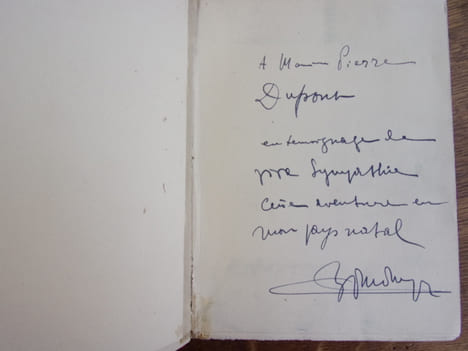 A Pierre
Dupont
en temoignage de
Sympathie
Cette aventure en
mon pays natal